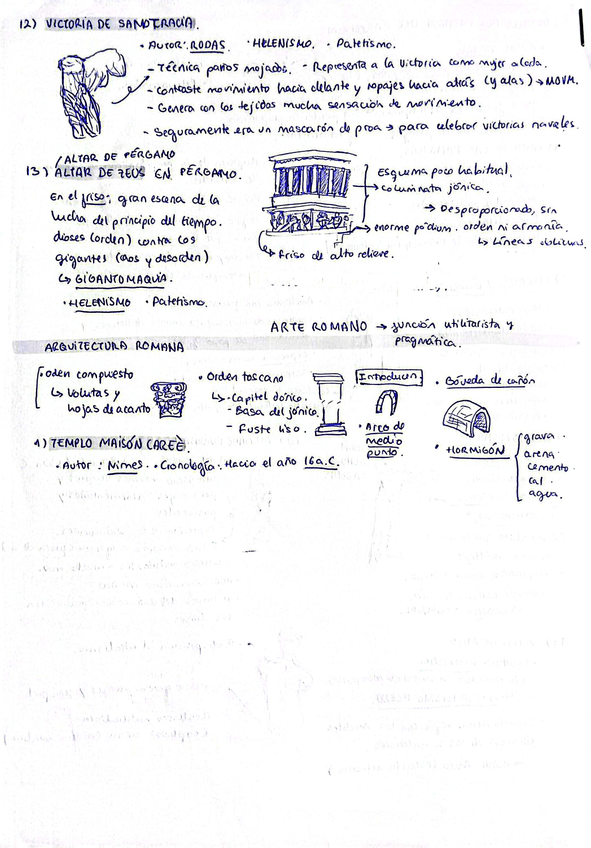 12) VICTORIA DE SAMOTRACIA.
· Autor: RODAS · HELENISMO. · Patetismo.
- Técnica paños mojados. - Representa a la Victoria como mujer alada.
- contraste movimiento hacia delante y ropajes hacia atrás (y alas) → MOVM.
- Genera con los tejidos mucha sensación de movimiento.
- Seguramente era un mascarón de proa → para celebrar victorias navales.
/ALTAR DE PÉRGAMO
13) ALTAR DE ZEUS EN PÉRGAMO.
En el friso: gran escena de la
lucha del principio del tiempo.
dioses (orden) contra los
gigantes (caos y desorden)
↳ GIGANTOMAQUIA.
· HELENISMO · Patetismo.
Esquema poco habitual.
→ columnata jónica.
→ Desproporcionado, sin
orden ni armonía.
↳ Líneas oblicuas.
→ enorme pódium.
↳ friso de alto relieve.
ARTE ROMANO → función utilitarista y
pragmática.
ARQUITECTURA ROMANA
oden compuesto
↳ Volutas y
hojas de acanto
· Orden toscano
↳ - Capitel dórico.
- Basa del jónico.
- Fuste liso.
Introducen
· Arco de
medio
punto.
· Bóveda de cañón
· HORMIGÓN
grava.
arena.
cemento.
cal.
agua.
1) TEMPLO MAISÓN CAREÈ.
· Autor: Nimes. · Cronología: Hacia el año 16 a.C.